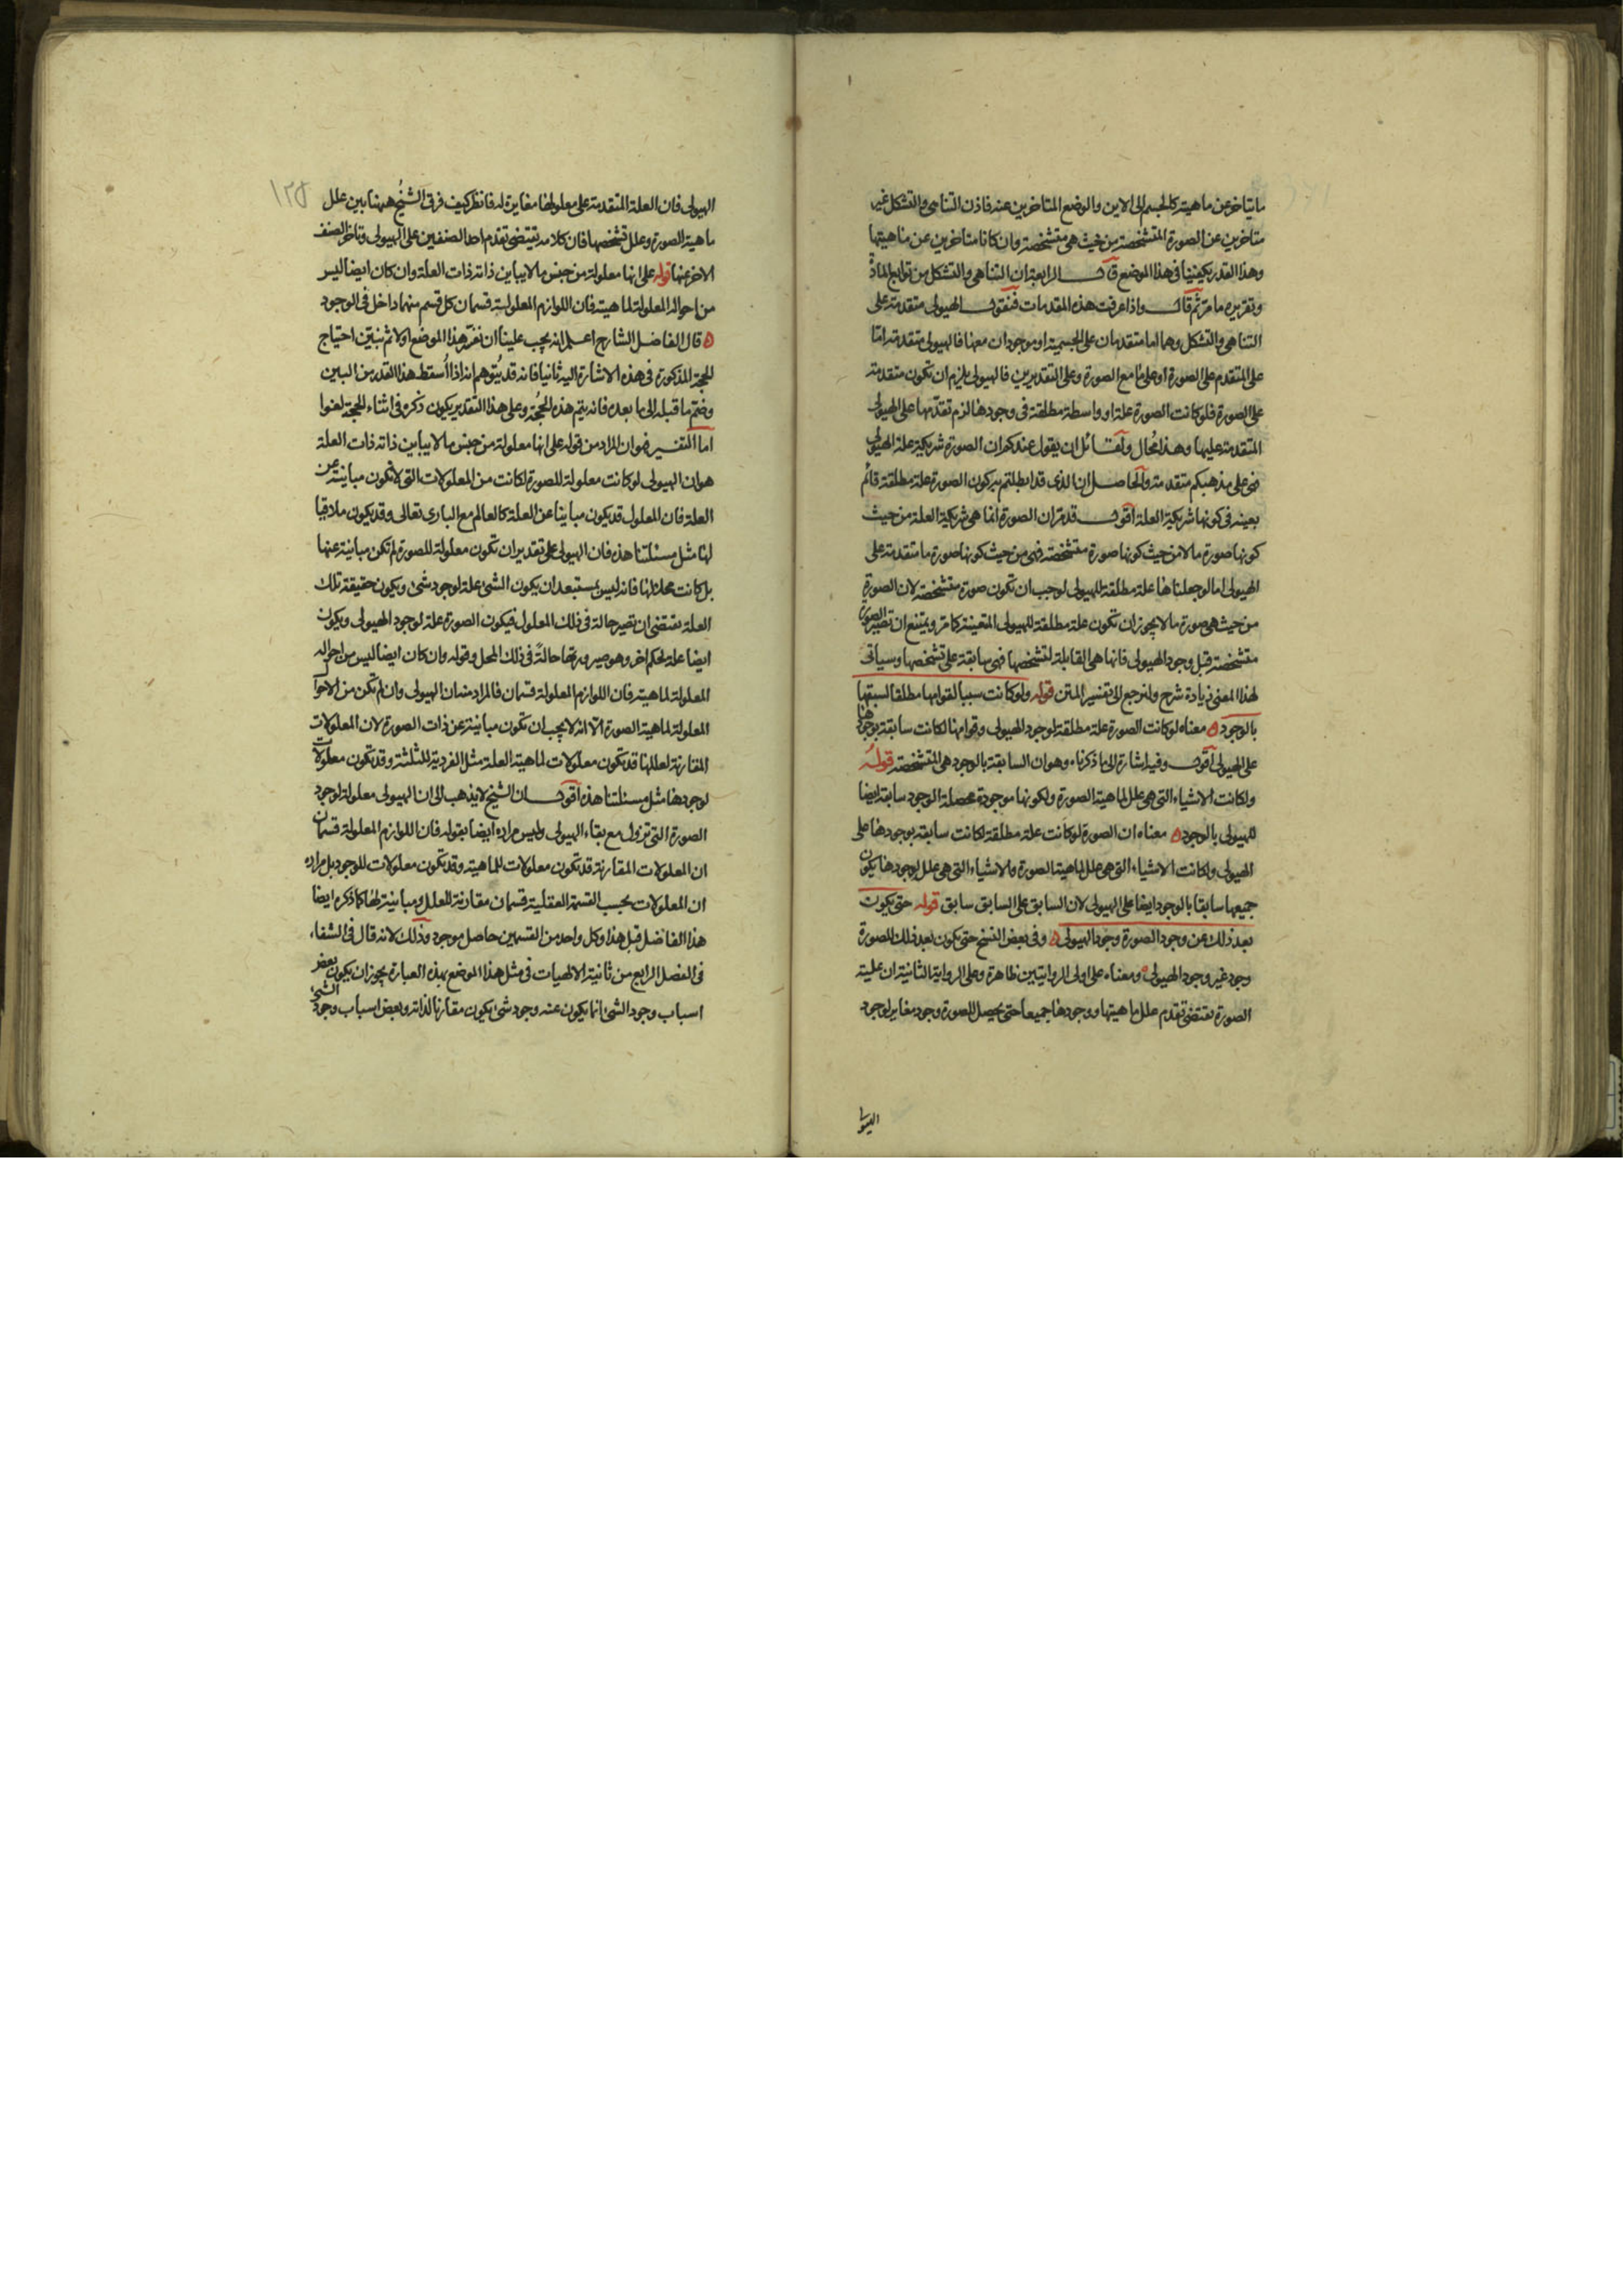 ما يتاخر عن ماهيته كالجسم الى الاين والوضع المتاخرين عنه فاذن التناهى والتشكل غير
متاخرين عن الصورة المتشخصة من حيث هى متشخصة وان كانا متاخرين عن ماهيتها
وهذا القدر يكفينا فى هذا الموضع قال الرابعة ان التناهى والتشكل من توابع المادة
وتقريره ما مر ثم قال واذا عرفت هذه المقدمات فنقول الهيولى متقدمة على
التناهى والتشكل وهما اما متقدمان على الجسمية او موجودان معها فالهيولى متقدمة اما
على المتقدم على الصورة او على ما مع الصورة وعلى التقديرين فالهيولى يلزم ان تكون متقدمة
على الصورة فلو كانت الصورة علة او واسطة مطلقة فى وجودها لزم تقدمها على الهيولى
المتقدمة عليها وهذا محال ولقائل ان يقول عندكم ان الصورة شريكة علة الهيولى
فهى على مذهبكم متقدمة والحاصل ان الذى قد ابطلتم به كون الصورة علة مطلقة قائم
بعينه فى كونها شريكة العلة اقول قد مر ان الصورة انما هى شريكة العلة من حيث
كونها صورة ما لا من حيث كونها صورة متشخصة فهى من حيث كونها صورة ما متقدمة على
الهيولى اما لو جعلناها علة مطلقة للهيولى لوجب ان تكون صورة متشخصة لان الصورة
من حيث هى صورة ما لا يجوز ان تكون علة مطلقة للهيولى المتعينة كما مر ويمتنع ان تصير الصورة
متشخصة قبل وجود الهيولى فانها هى القابلة لتشخصها فهى سابقة على تشخصها وسياتى
لهذا المعنى زيادة شرح ولنرجع الى تفسير المتن قوله ولو كانت سببا لقوامها مطلقا لسبقتها
بالوجود ه معناه لو كانت الصورة علة مطلقة لوجود الهيولى وقوامها لكانت سابقة بوجودها
على الهيولى اقول وفيه اشارة الى ما ذكرناه وهو ان السابقة بالوجود هى المتشخصة قوله
ولكانت الاشياء التى هى علل لماهية الصورة ولكونها موجودة محصلة الوجود سابقة ايضا
للهيولى بالوجود ه معناه ان الصورة لو كانت علة مطلقة لكانت سابقة بوجودها على
الهيولى ولكانت الاشياء التى هى علل لماهية الصورة والاشياء التى هى علل لوجودها يكون
جميعها سابقا بالوجود ايضا على الهيولى لان السابق على السابق سابق قوله حتى يكون
بعد ذلك عن وجود الصورة وجود الهيولى ه وفى بعض النسخ حتى يكون بعد ذلك للصورة
وجود غير وجود الهيولى ه ومعناه على اولى الروايتين ظاهرة وعلى الرواية الثانية ان علية
الصورة تقتضى تقدم علل ماهيتها ووجودها جميعا حتى يحصل للصورة وجود مغاير لوجود
١٢٥
الهيولى فان العلة المتقدمة على معلولها مغايرة له فانظر كيف فرق الشيخ ههنا بين علل
ماهية الصورة وعلل تشخصها فان كلامه يقتضى تقدم احد الصنفين على الهيولى وتاخر الصنف
الاخر عنها قوله على انها معلولة من جنس ما لا يباين ذاته ذات العلة وان كان ايضا ليس
من احواله المعلولة لماهيته فان اللوازم المعلولة قسمان كل قسم منهما داخل فى الوجود
ه قال الفاضل الشارح اعلم انه يجب علينا ان نفسر هذا الموضع اولا ثم نبين احتياج
الحجة المذكورة فى هذه الاشارة اليه ثانيا فانه قد يتوهم انه اذا اسقط هذا القدر من البين
وضم ما قبله الى ما بعده فانه يتم هذه الحجة وعلى هذا التقدير يكون ذكره فى اثناء الحجة لغوا
اما التفسير فهو ان المراد من قوله على انها معلولة من جنس ما لا يباين ذاته ذات العلة
هو ان الهيولى لو كانت معلولة للصورة لكانت من المعلولات التى لا تكون مباينة عن
العلة فان المعلول قد يكون مباينا عن العلة كالعالم مع البارى تعالى وقد يكون ملاقيا
لها مثل مسئلتنا هذه فان الهيولى على تقدير ان تكون معلولة للصورة لم تكن مباينة عنها
بل كانت محلا لها فانه ليس بمستبعد ان يكون الشئ علة لوجود شئ ويكون حقيقة تلك
العلة تقتضى ان تصير حالة فى ذلك المعلول فيكون الصورة علة لوجود الهيولى ويكون
ايضا علة لحكم اخر وهو صيرورتها حالة فى ذلك المحل وقوله وان كان ايضا ليس من احواله
المعلولة لماهيته فان اللوازم المعلولة قسمان فالمراد منه ان الهيولى وان لم تكن من الاحوال
المعلولة لماهية الصورة الا انه لا يجب ان تكون مباينة عن ذات الصورة لان المعلولات
المقارنة لعللها قد تكون معلولات لماهية العلة مثل الفردية للثلثة وقد تكون معلولات
لوجودها مثل مسئلتنا هذه اقول ان الشيخ لا يذهب الى ان الهيولى معلولة لوجود
الصورة التى تزول مع بقاء الهيولى وليس مراده ايضا بقوله فان اللوازم المعلولة قسمان
ان المعلولات المقارنة قد تكون معلولات للماهية وقد تكون معلولات للوجود بل مراده
ان المعلولات بحسب القسمة العقلية قسمان مقارنة للعلل ومباينة لها كما ذكره ايضا
هذا الفاضل قبل هذا وكل واحد من القسمين حاصل موجود وذلك لانه قال فى الشفاء
فى الفصل الرابع من ثانية الالهيات فى مثل هذا الموضع بهذه العبارة يجوز ان يكون بعض
اسباب وجود الشئ انما يكون عنه وجود شئ يكون مقارنا لذاته وبعض اسباب وجود الشئ